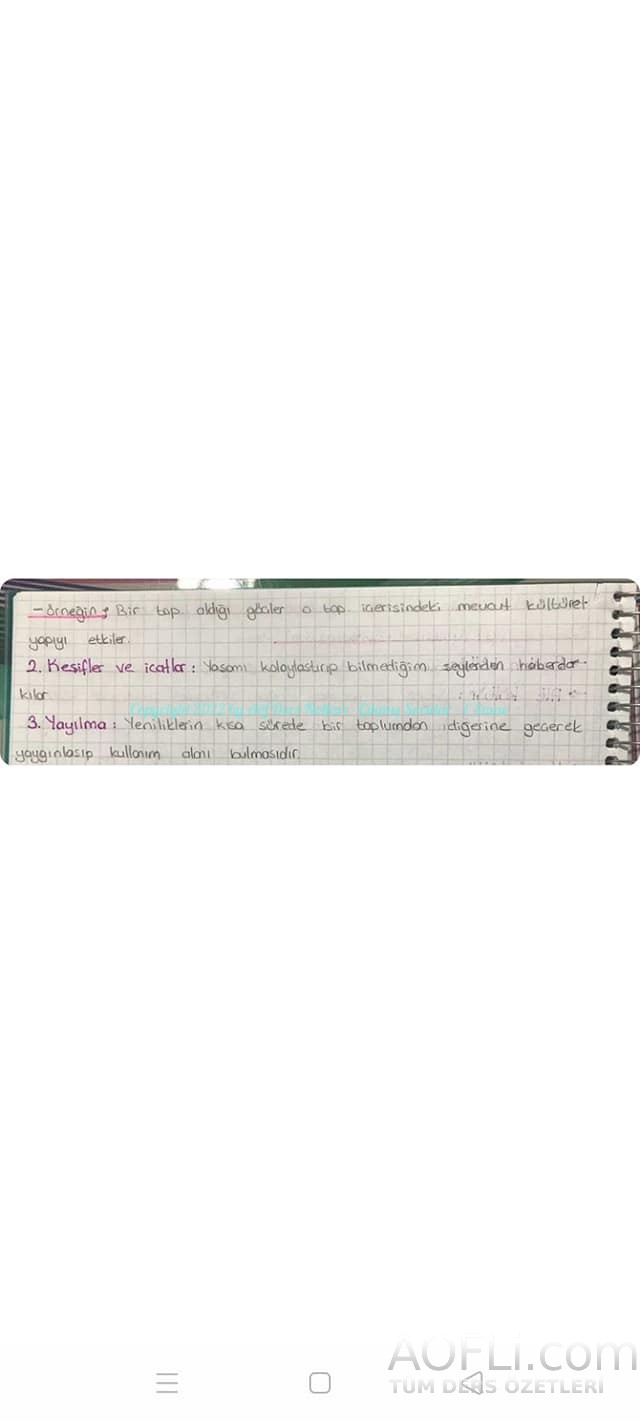 - Örneğin; Bir top. aldığı göçler o top. içerisindeki mevcut kültürel
yapıyı etkiler.
2. Keşifler ve icatlar: Yaşamı kolaylaştırıp bilmediğim şeylerden haberdar
kılar
3. Yayılma: Yeniliklerin kısa sürede bir toplumdan diğerine geçerek
yaygınlaşıp kullanım alanı bulmasıdır.
AOFLi.com
TÜM DERS ÖZETLERİ